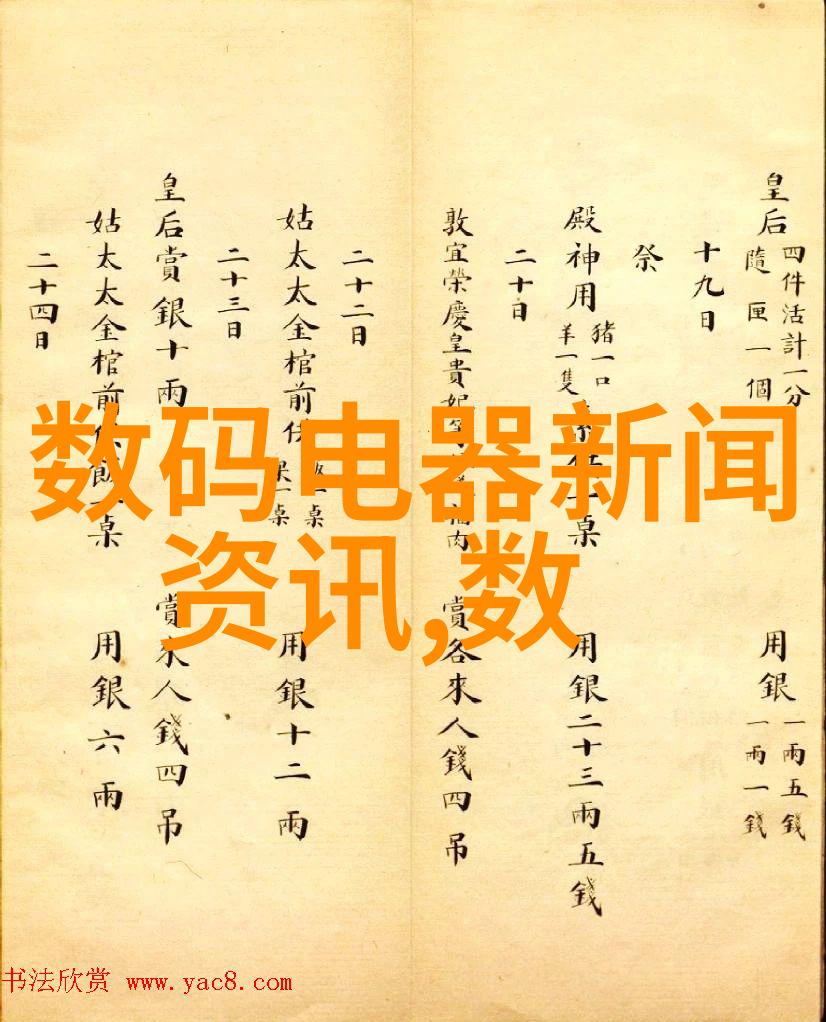 皇后 四件活計一分
隨匣一個 用銀 一兩五錢
一兩一錢
十九日
祭
殿神用 豬一口
羊一隻 桌 用銀二十三兩五錢
二十日
敦宜榮慶皇貴妃 肉 賞各來人錢四吊
二十二日
姑太太金棺前供 一桌
一桌 用銀十二兩
二十三日
皇后賞銀十兩 賞來人錢四吊
姑太太金棺前供飯一桌 用銀六兩
二十四日
数码电器新闻
资讯,数
书法欣赏 www.yac8.com